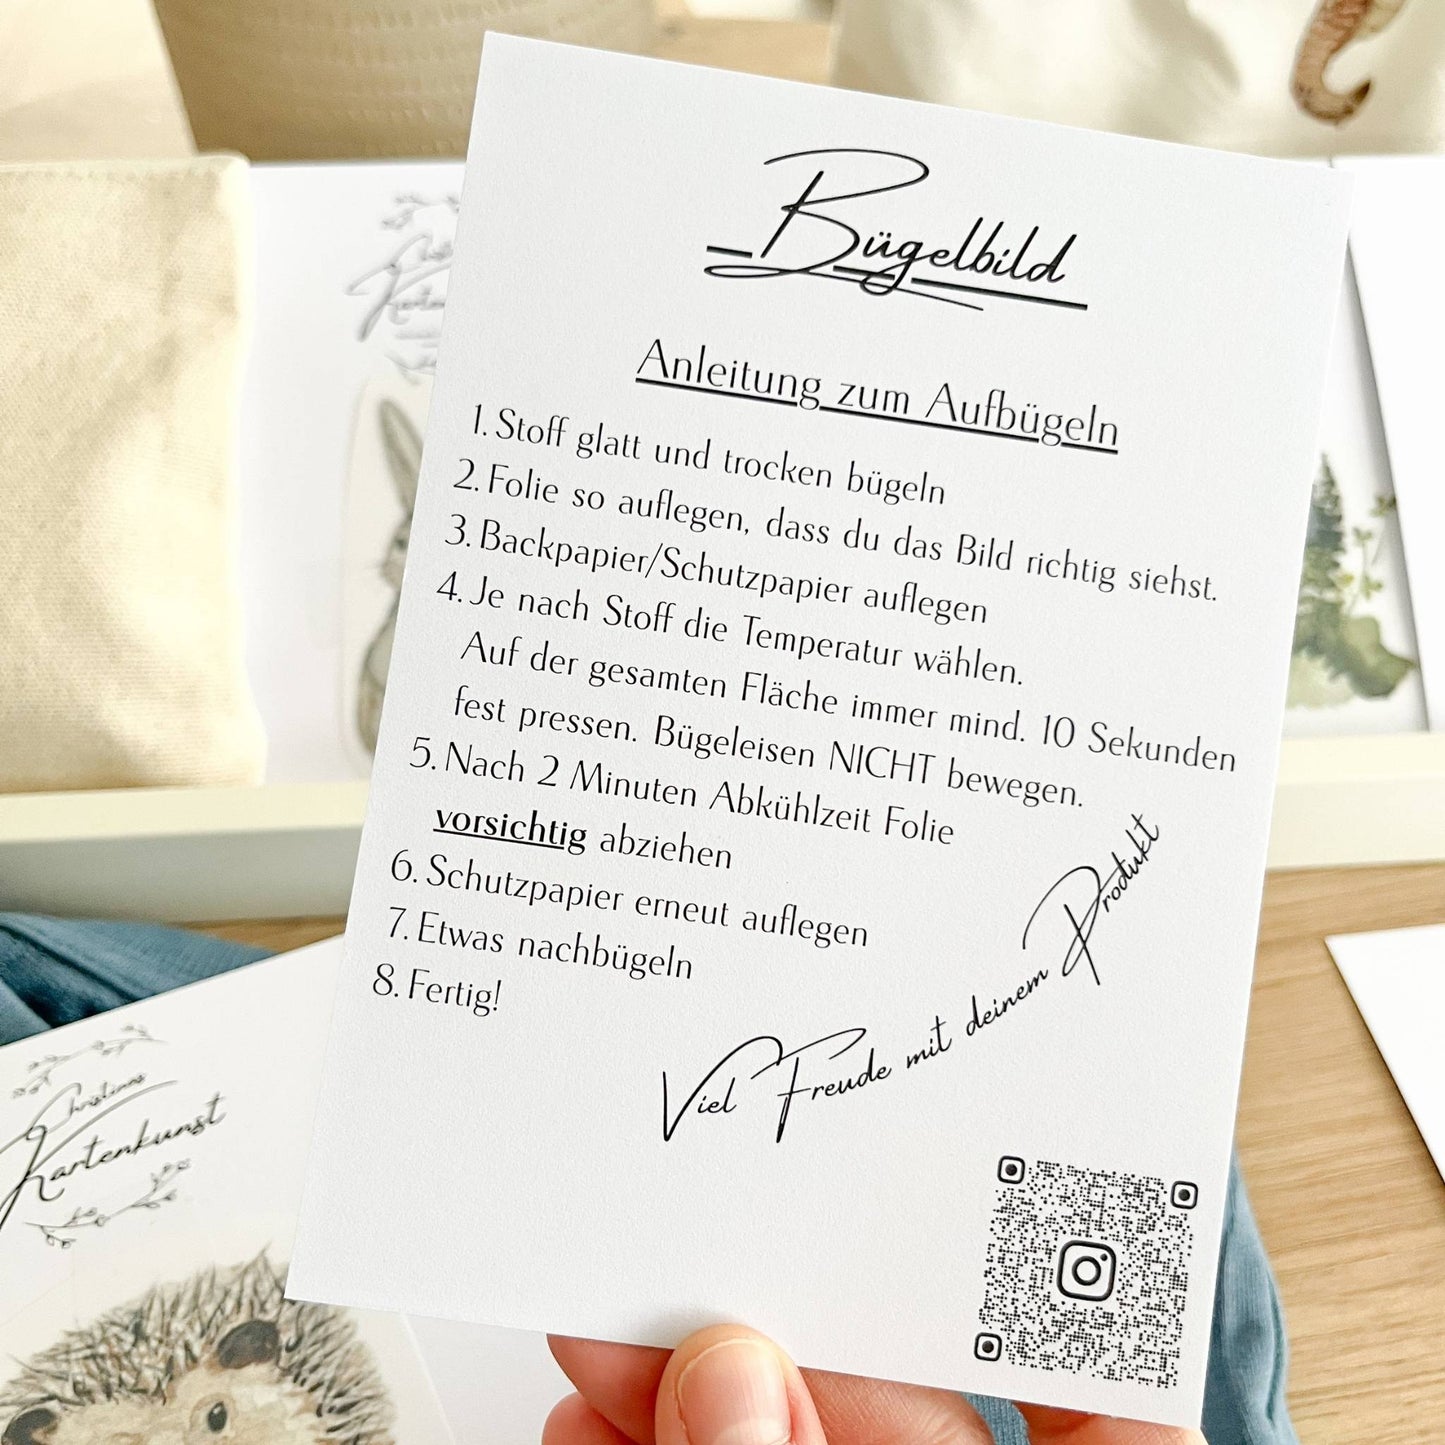 Bügelbild
Anleitung zum Aufbügeln
1. Stoff glatt und trocken bügeln
2. Folie so auflegen, dass du das Bild richtig siehst.
3. Backpapier/Schutzpapier auflegen
4. Je nach Stoff die Temperatur wählen.
Auf der gesamten Fläche immer mind. 10 Sekunden
fest pressen. Bügeleisen NICHT bewegen.
5. Nach 2 Minuten Abkühlzeit Folie
vorsichtig abziehen
6. Schutzpapier erneut auflegen
7. Etwas nachbügeln
8. Fertig!
Viel Freude mit deinem Produkt
Christinas
Kartenkunst